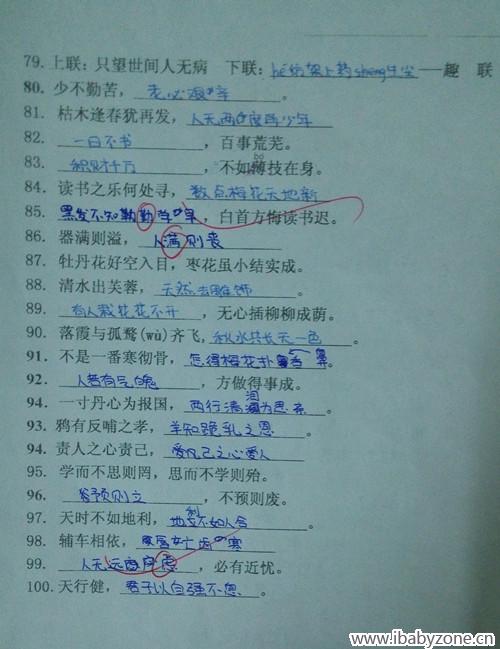 79. 上联：只望世间人无病 下联：hé妨架上药shēng尘——趣 联
80. 少不勤苦，老必艰辛。
81. 枯木逢春犹再发，人无两度再少年
82. 一日不书，百事荒芜。
83. 积财千万，不如薄技在身。
84. 读书之乐何处寻，数点梅花天地新
85. 黑发不知勤学早，白首方悔读书迟。
86. 器满则溢，人满则丧
87. 牡丹花好空入目，枣花虽小结实成。
88. 清水出芙蓉，天然去雕饰。
89. 有人栽花花不开，无心插柳柳成荫。
90. 落霞与孤鹜(wù)齐飞，秋水共长天一色。
91. 不是一番寒彻骨，怎得梅花扑鼻香。
92. 人若有气魄，方做得事成。
94. 一寸丹心为报国，两行清泪为思亲。
93. 鸦有反哺之孝，羊知跪乳之恩。
94. 责人之心责己，爱己之心爱人
95. 学而不思则罔，思而不学则殆。
96. 预则立，不预则废。
97. 天时不如地利，地利不如人合。
98. 辅车相依，唇亡齿寒
99. 人无远虑，必有近忧。
100. 天行健，君子以自强不息。
www.ibabyzone.cn